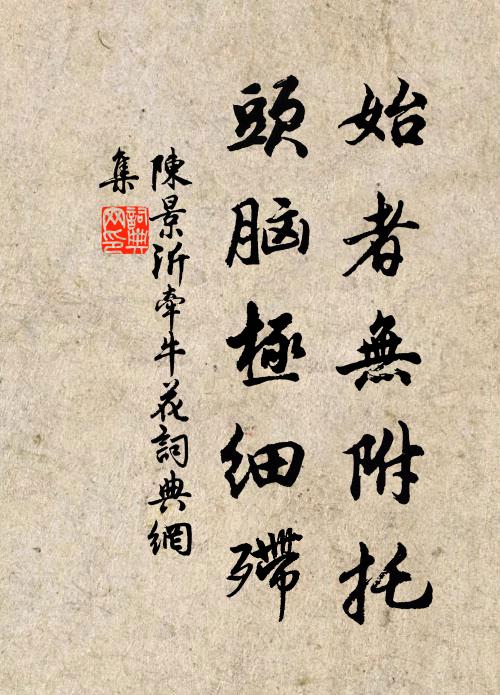 始者無附托
頭脑極細殢
陳景沂牽牛花詞典網
集
詞典網印